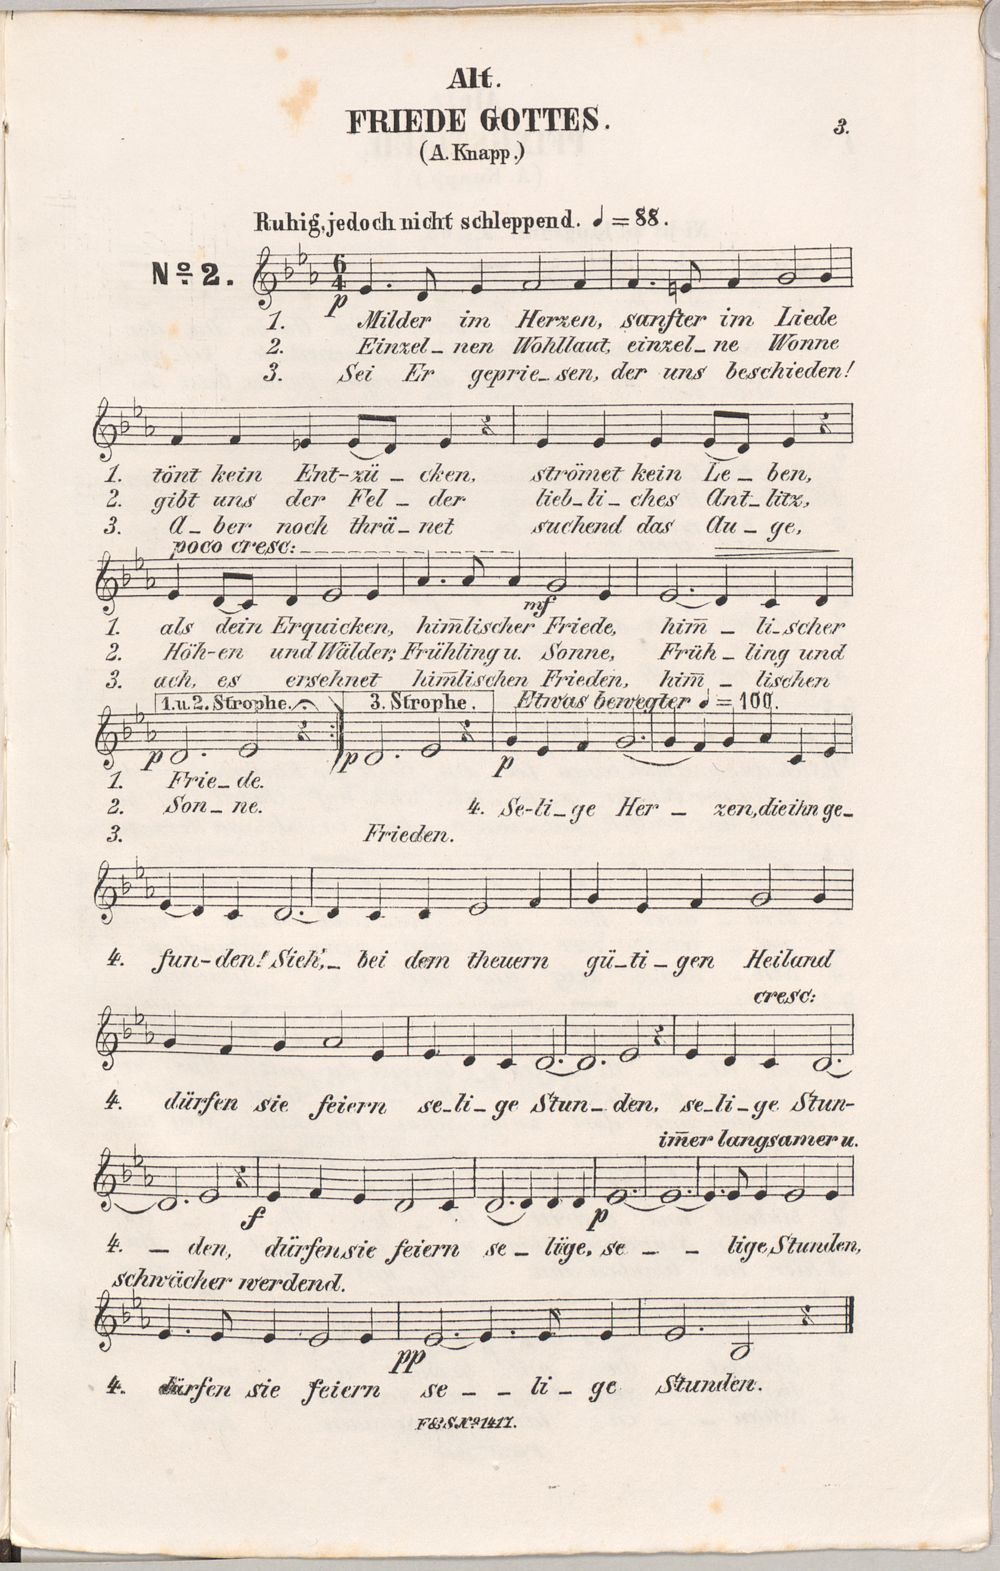 Alt.
FRIEDE GOTTES.
3.
(A. Knapp.)
Ruhig, jedoch nicht schleppend. ♩ = 88.
Nº 2.
6
4
p
1. Milder im Herzen, sanfter im Liede
2. Einzel_nen Wohllaut, einzel_ne Wonne
3. Sei Er geprie_sen, der uns beschieden!
1. tönt kein Ent-zü_cken, strömet kein Le_ben,
2. gibt uns der Fel_der lieb_li_ches Ant_litz,
3. a_ber noch thrä_net suchend das Au_ge,
poco cresc:
mf
1. als dein Erquicken, him̅lischer Friede, him̅_li_scher
2. Höh-en und Wälder, Frühling u. Sonne, Früh_ling und
3. ach, es ersehnet him̅lischen Frieden, him̅_lischen
1. u. 2. Strophe. 3. Strophe. Etwas bewegter ♩ = 100.
p p p
1. Frie_de.
2. Son_ne. 4. Se-li_ge Her_zen, die ihn ge_
3. Frieden.
4. fun-den! Sieh',_ bei dem theuern gü_ti_gen Heiland
cresc:
4. dürfen sie feiern se_li_ge Stun_den, se_li_ge Stun-
im̅er langsamer u.
f p
4. _den, dürfen sie feiern se_lige, se__lige Stunden,
schwächer werdend.
pp
4. dürfen sie feiern se__li_ge Stunden.
F&S. Nº 1417.